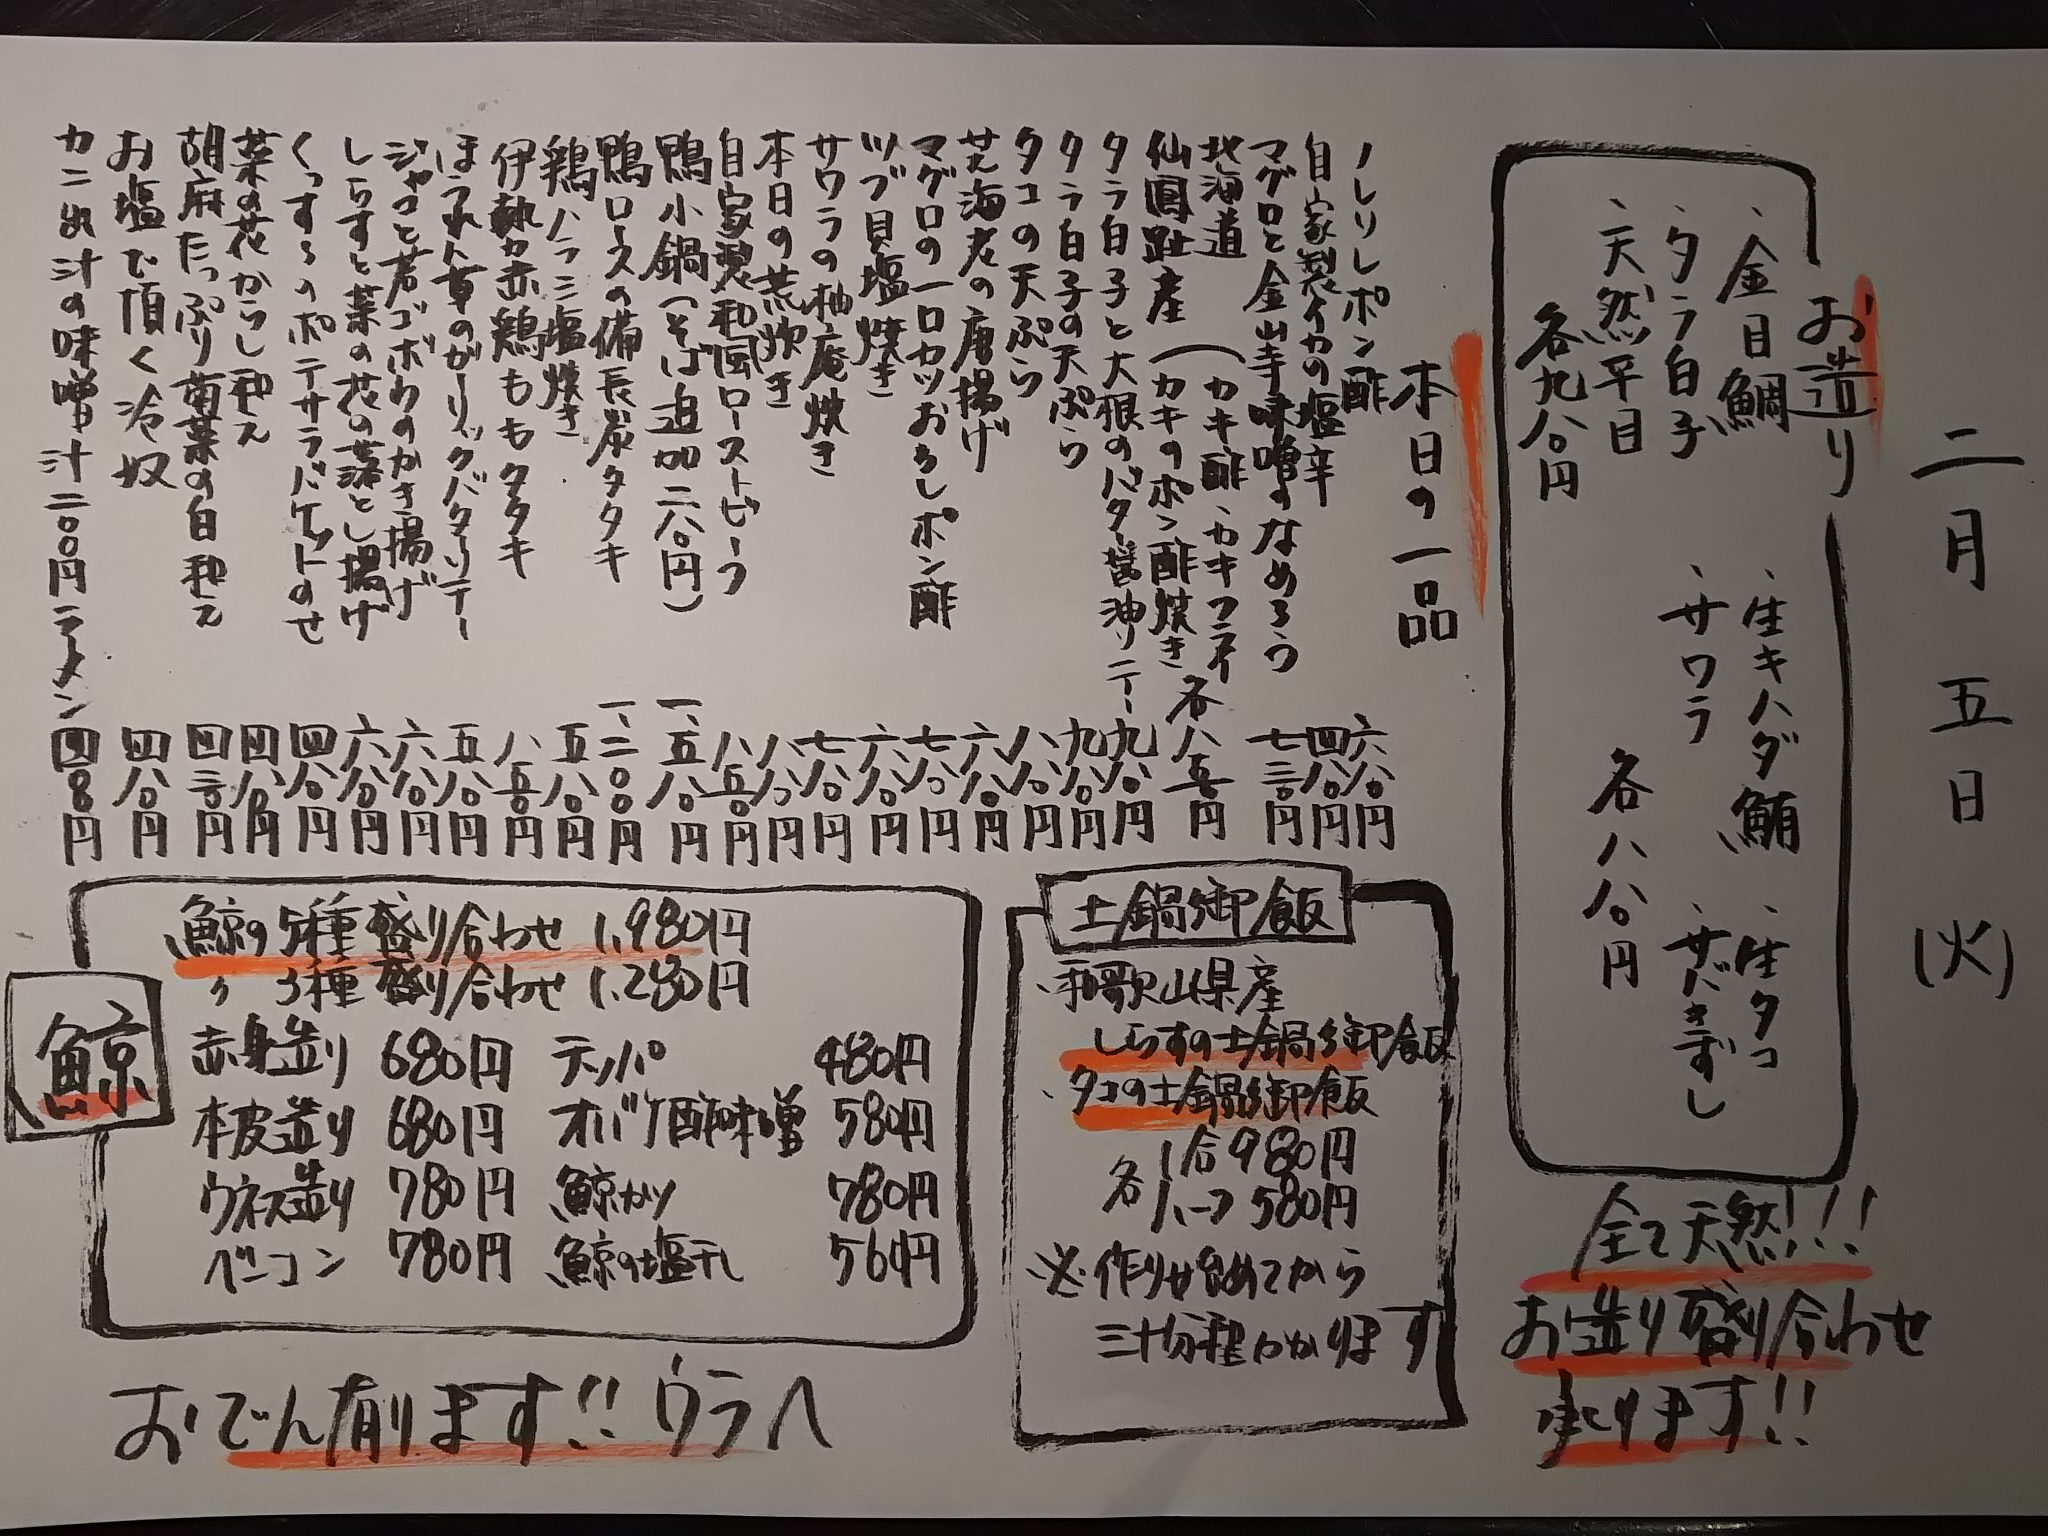 二月五日(火)
お造り
、金目鯛
、タラ白子
、天然平目
各九八〇円
、生キハダ鮪
、サワラ
、生タコ
、サバきずし
各八八〇円
全て天然!!!
お造り盛り合わせ
承ります!!
本日の一品
ノレソレポン酢 六八〇円
自家製イカの塩辛 四八〇円
マグロと金山寺味噌のなめろう 七三〇円
北海道
仙鳳趾産
(カキ酢、カキフライ
(カキのポン酢焼き 各八五〇円
タラ白子と大根のバター醤油ソテー 九八〇円
タラ白子の天ぷら 九八〇円
タコの天ぷら 八八〇円
芝海老の唐揚げ 六八〇円
マグロの一口カツおろしポン酢 七八〇円
ツブ貝塩焼き 六八〇円
サワラの柚庵焼き 七八〇円
本日の荒炊き 八八〇円
自家製和風ローストビーフ 八五〇円
鴨小鍋(そば追加二八〇円) 一、五八〇円
鴨ロースの備長炭タタキ 一、二〇〇円
鶏ハラミ塩焼き 五八〇円
伊勢赤鶏ももタタキ 八五〇円
ほうれん草のガーリックバターソテー 五八〇円
ジャコと若ゴボウのかき揚げ 六八〇円
しらすと菜の花の落とし揚げ 六八〇円
くっするのポテサラバケットのせ 四八〇円
菜の花からし和え 四八〇円
胡麻たっぷり菊菜の白和え 四三〇円
お塩で頂く冷奴 四八〇円
カニ出汁の味噌汁二〇〇円ラーメン 四八〇円
土鍋御飯
、和歌山県産
しらすの土鍋御飯
、タコの土鍋御飯
各 1合980円
ハーフ580円
※作り始めてから
三十分程かかります
鯨
鯨の5種盛り合わせ 1,980円
〃 3種盛り合わせ 1,280円
赤身造り 680円 テッパ 480円
本皮造り 680円 オバケ酢味噌 580円
ウネス造り 780円 鯨カツ 780円
ベーコン 780円 鯨の塩干し 560円
おでん有ります!!ウラへ